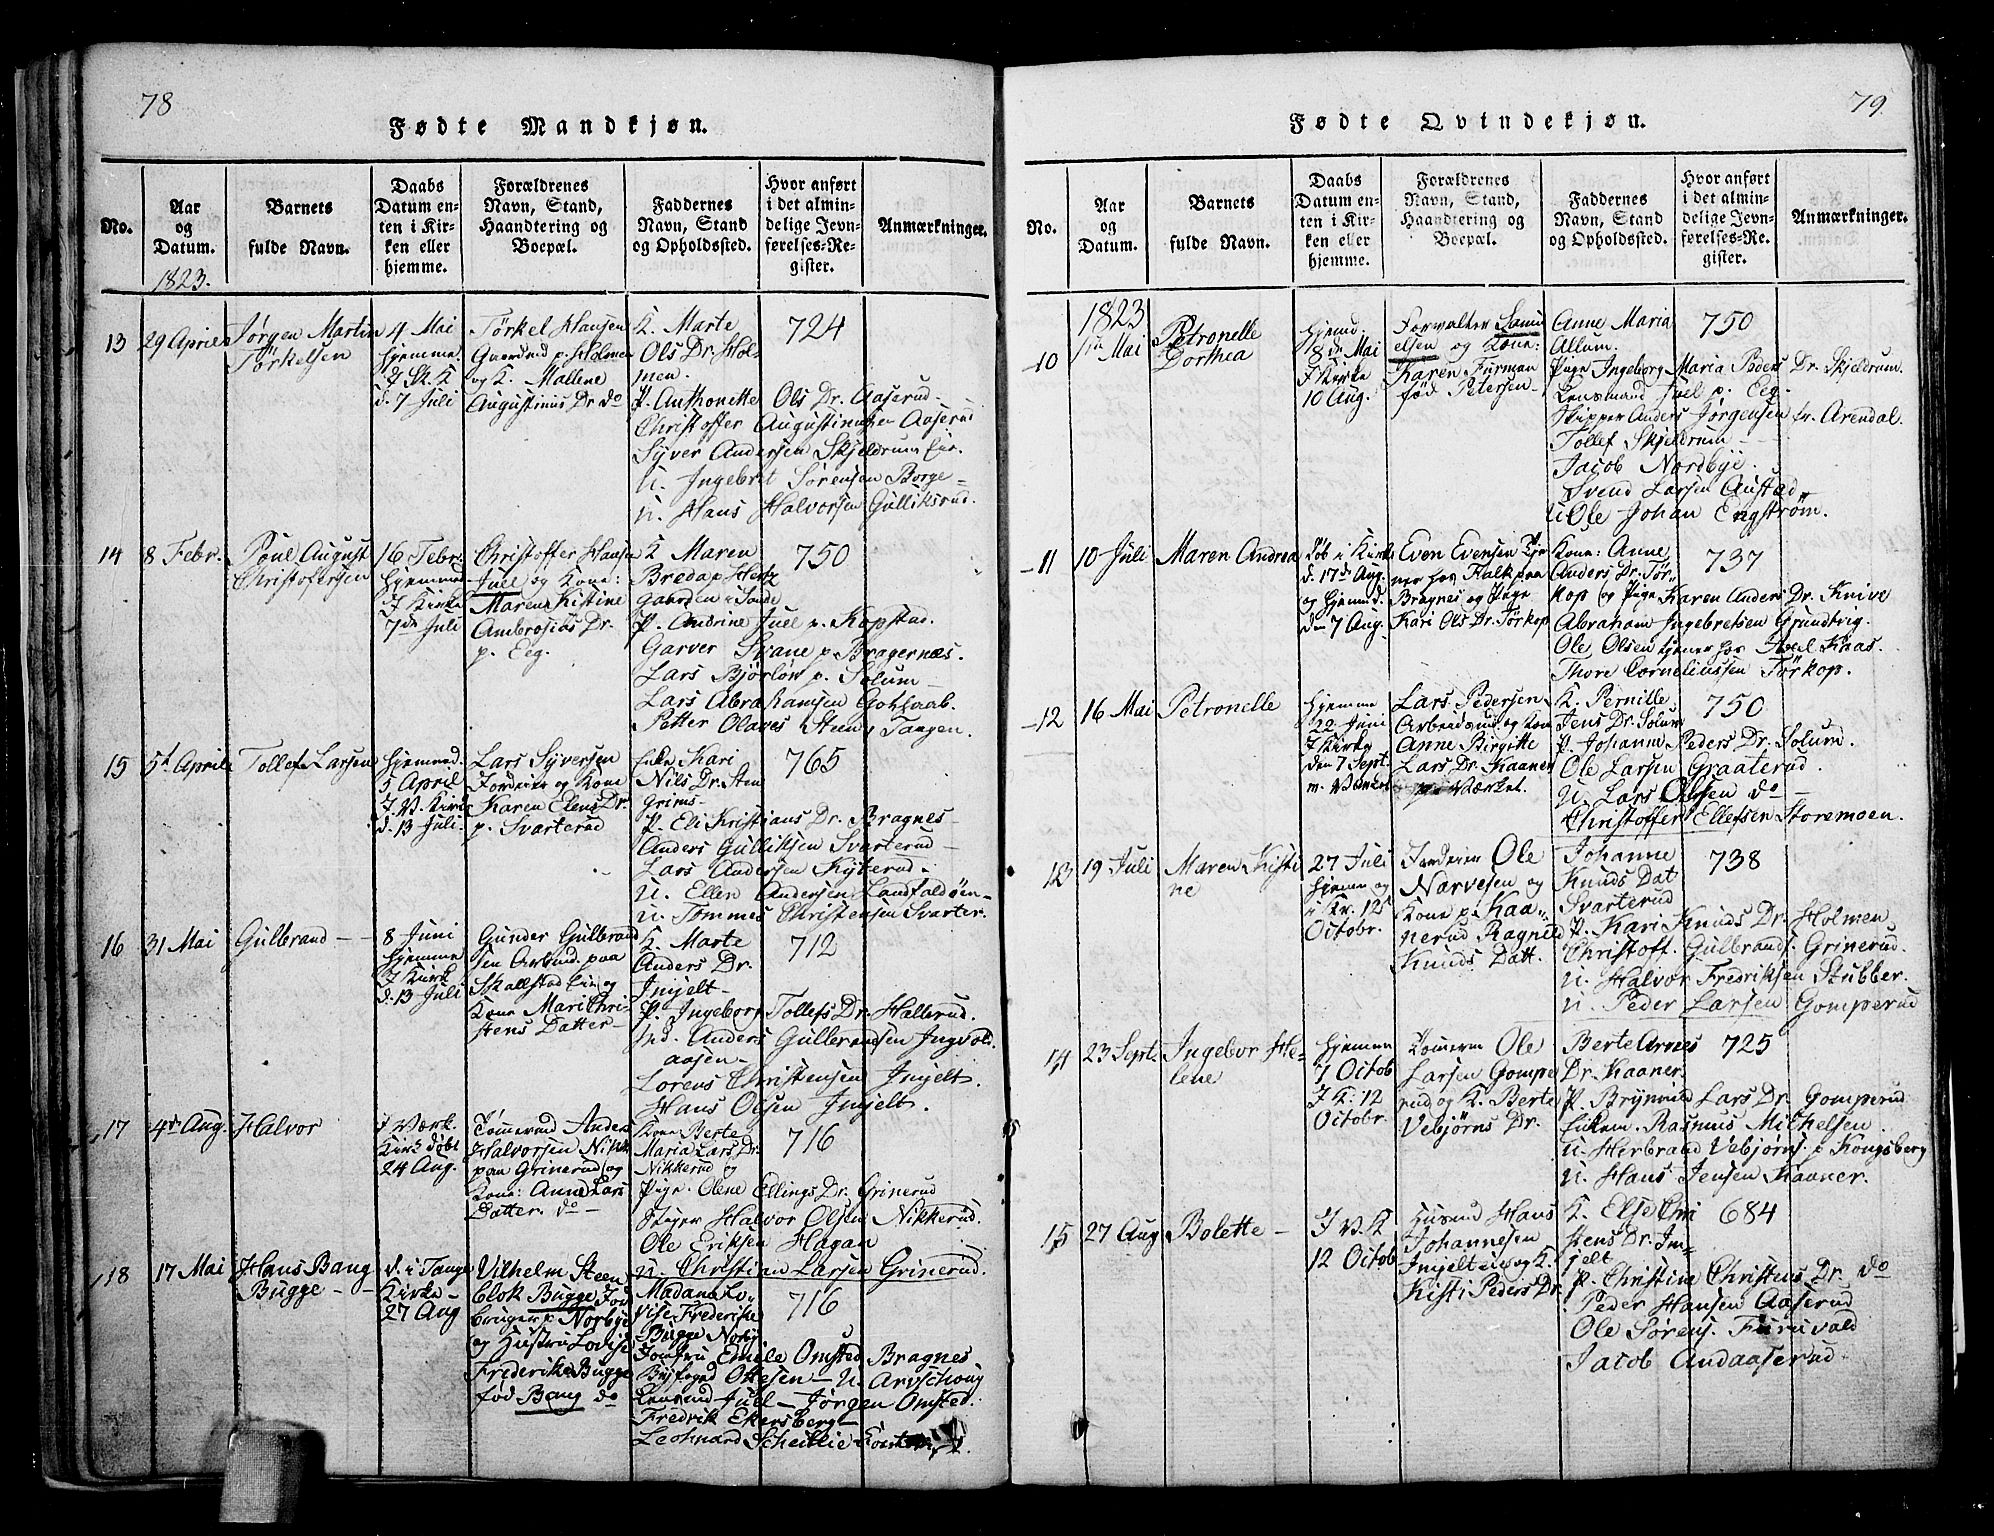 78
Fødte Mandkjøn.
No.
Aar
og
Datum.
1823.
Barnets
fulde Navn.
Daabs
Datum en-
ten i Kir-
ken eller
hjemme.
Forældrenes
Navn, Stand,
Haandtering og
Boepæl.
Faddernes
Navn, Stand
og Opholdssted.
Hvor anført
i det almin-
delige Jevn-
førelses-Re-
gister.
Anmærkninger.
13
29 April
Jørgen Martin
Törkelsen
4 Mai
Hjemme.
I Sk. K
d. 7 Juli
Törkel Hansen
Gaardmd p. Holmen
og K. Mallene
Augustinus Dr do
K. Marte
Ols Dr. Hol-
men.
P. Anthonette Ols Dr. Aaserud
Christoffer Augustinusen Aaserud
Syver Andersen Skjeldrum
U. Ingebret Sørensen Borge-
U. Hans Halvorsen Gulliksrud.
724
14
8 Febr.
Poul August
Christofersen
16 Febr.
Hjemmed
I Kirke
7de Juli
Christoffer Hansen
Juel og Kone:
Maren Kistine
Ambrosius Dr.
p. Eeg.
K. Maren
Breda p. Hertz
Gaarden i Sande
P. Andrine Juel p. Kopstad.
Garver Svane p. Bragernæs.
Lars Bjørløv p. Solum-
Lars Abrahamsen Gothaab.
Petter Olaves Steen, Tangen.
750
15
5te April
Tollef Larsen
Hjemmed.
5 April
I V. Kirke
d. 13 Juli
Lars Syversen
Jordeier og Kone
Karen Elens Dr.
p. Svarterud
Enke Kari
Nils Dr. Sten
Grims-
P. Eli Kristians Dr. Bragnes-
Anders Gulliksen Svarterud-
Lars Andersen Kyterud.
U. Ellen Andersen Landfaldöen-
U. Tommes Christensen Svarter.
765
16
31 Mai
Gulbrand
8 Juni
Hjemme
I Kirk
d. 13 Juli
Gunder Gulbrand
sen Arbmd. paa
Skallstad Eie og
Kone Mari Chri-
stens Datter-
K. Marte
Anders Dr.
Injelt-
P. Ingeborg Tollefs Dr. Hallerud.
Anders Gulbrandsen Ingvold.
aasen-
Lorens Christensen Injelt.
Hans Olsen Injelt.
712
17
4de Aug.
Halvor
I Værk.
Kirk döbt
24 Aug.
Tömermd Anders
Halvorsen Nikk
paa Grinerud og
Kone: Anne Lars
Datter. do-
Kone Berte
Maria Lars Dr.
Nikkerud og
Pige. Olene Ellings Dr. Grinerud
Stiger Halvor Olsen Nikkerud.
Ole Eriksen Hagan
U. Christian Larsen Grinerud.
716
18
17 Mai
Hans Bang
Bugge
d. i Tange
Kirke-
27 Aug
Vilhelm Steen
blok Bugge For
bruger p. Norbye
og Hustru Lovise
Frederikke Bugge
fød Bang do
Madame Lo-
vise Frederikke
Bugge Norby
Jomfru Emilie Omsted Bragnes
Byfoged Ottesen- U. Arvschoug
Lensmd Juel- Jörgen Omsted.
Fredrik Ekersberg-
Leonnard Scheitlie
716
79.
Fødte Qvindekjøn.
No.
Aar
og
Datum.
Barnets
fulde Navn.
Daabs
Datum en-
ten i Kir-
ken eller
hjemme.
Forældrenes
Navn, Stand,
Haandtering og
Boepæl.
Faddernes
Navn, Stand
og Opholdssted.
Hvor anført
i det almin-
delige Jevn-
førelses-Re-
gister.
Anmærkninger.
10
1823
1ste Mai
Petronelle
Dorthea
Hjemd.
8de Mai
I Kirke
10 Aug.
Forvalter Samu
elsen og Kone:
Karen Furman
fød Petersen-
Anne Maria
Allum.
Pige Ingeborg Maria Peders Dr. Skjeldrum.
Lensmand Juel p. Eeg.
Skipper Anders Jörgensen fr. Arendal.
Tollef Skjeldrum
Jacob Nordbye.
Svend Larsen Austad
U. Ole Johan Engström.
750
11
10 Juli
Maren Andrea
Döb i Kirke
d. 17de Aug.
og Hjemmd.
den 7 Aug.
Even Evensen Tje
ner hos Falk paa
Bragnes og Pige
Kari Ols Dr. Törkop
Kone: Anne
Anders Dr. Tör-
kop og Pige Karen Anders Dr. Knive
Abraham Ingebretsen Grundtvig.
Ole Olsen tjener hos Juel Kaas.
Thore Corneliussen Törkop.
737
12
16 Mai
Petronelle
Hjemme
22 Juni
I Kirke
den 7 Sept.
m. Værket
Lars Pedersen
Arbeidsmd og Kone
Anne Birgitte
Lars Dr. Kaaner
Værket.
K. Pernille
Jens Dr. Solum
P. Johanne Peders Dr. Solum.
Ole Larsen Graaterud.
U. Lars Olsen do-
Christoffer Ellefsen Storemoen.
750
13
19 Juli
Maren Kisti
ne
27 Juli
Hjemme og
i Kr. 12
Octobr.
Jordeier Ole
Narvesen og
Kone p. Kaa-
nerud Ragnild
Knuds Datt.
Johanne
Knuds Dat
Svarterud
P. Kari Knuds Dr. Holmen
Christoff. Gulbrands. Grinerud.
U. Halvor Fredriksen Stubber.
U. Peder Larsen Gomperud
738
14
23 Sept.
Ingebor He-
lene
Hjemme
7 Octob
I K. 12
Octobr.
Tömerm Ole
Larsen Gompe
rud og K. Berte
Vebjörns Dr.
Berte Arnes
Dr. Kaaner.
P. Brynild Lars Dr. Gomperud
Enkem. Rasmus Michelsen
U. Herbrand Vebjörns. p Kongsberg
U. Hans Jensen Kaaner.
725
15
27 Aug
Bolette
I V. K
12 Octob
Husmd Hans
Johannesen
Injelt eie og K.
Kisti Peders Dr.
K. Else Chri
stens Dr. In-
jelt
P. Christine Christens Dr. do
Peder Hansen Aaserud
Ole Sörens. Furuvald
Jacob Andaaserud
684